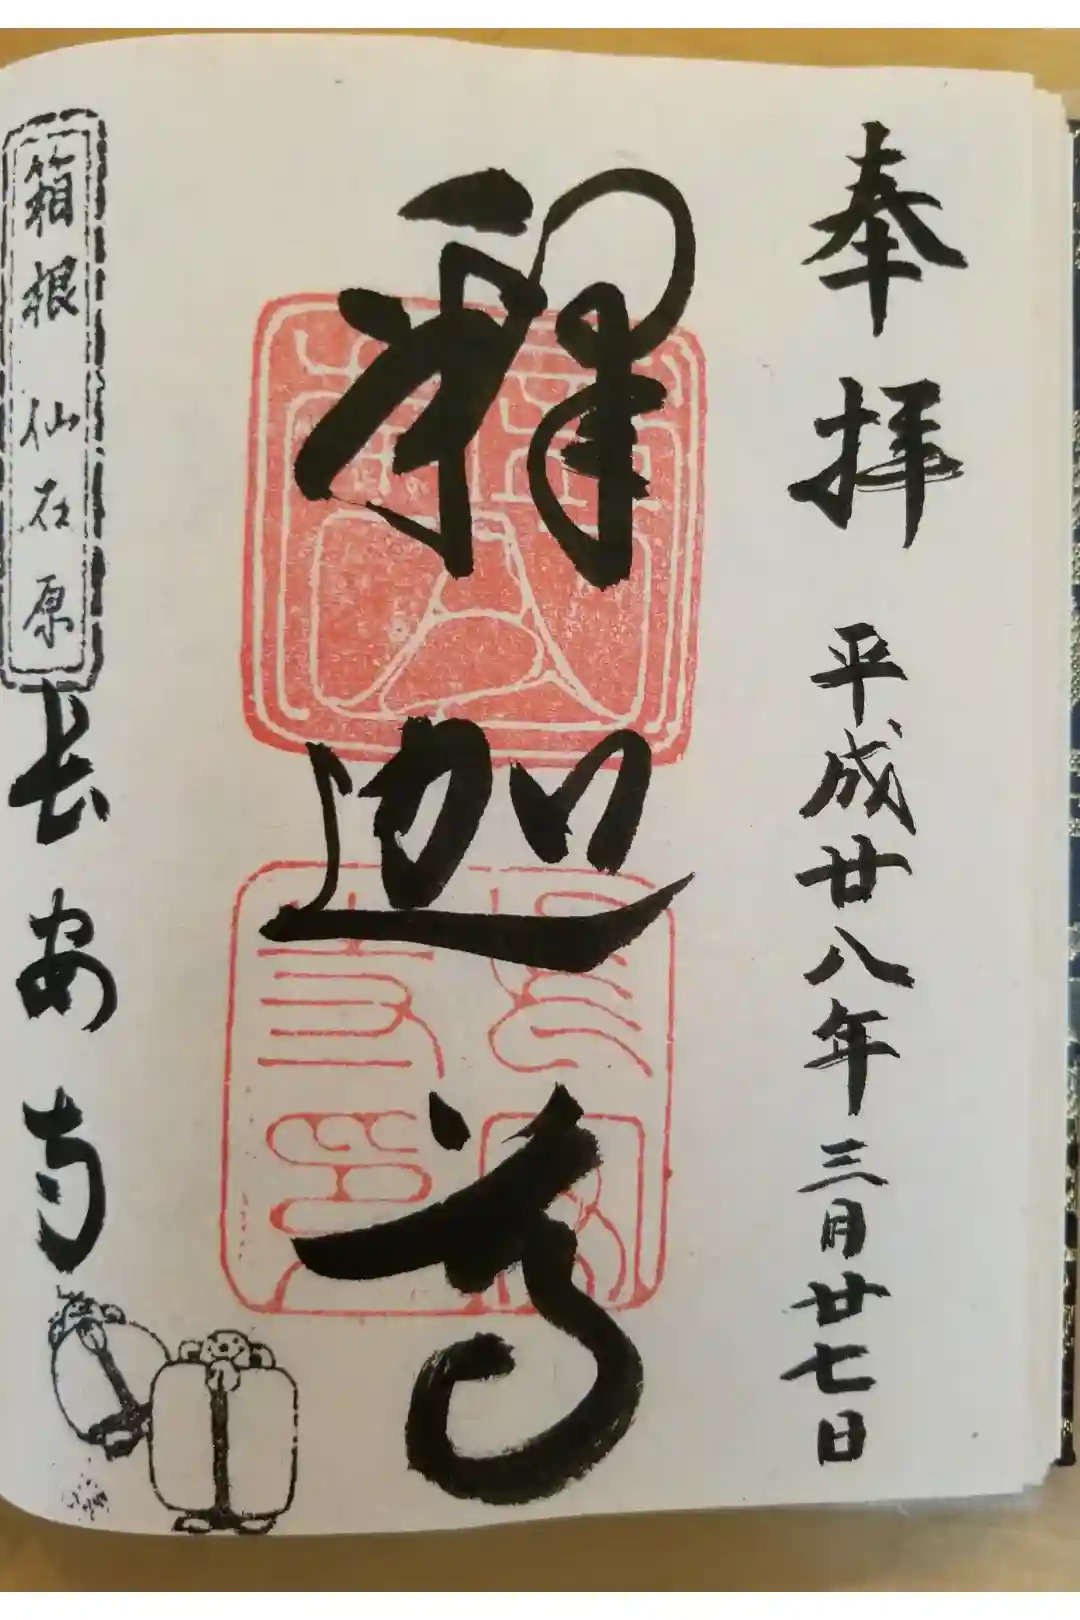 奉拝 平成廿八年三月廿七日
釋迦尊
箱根 仙石原
長安寺